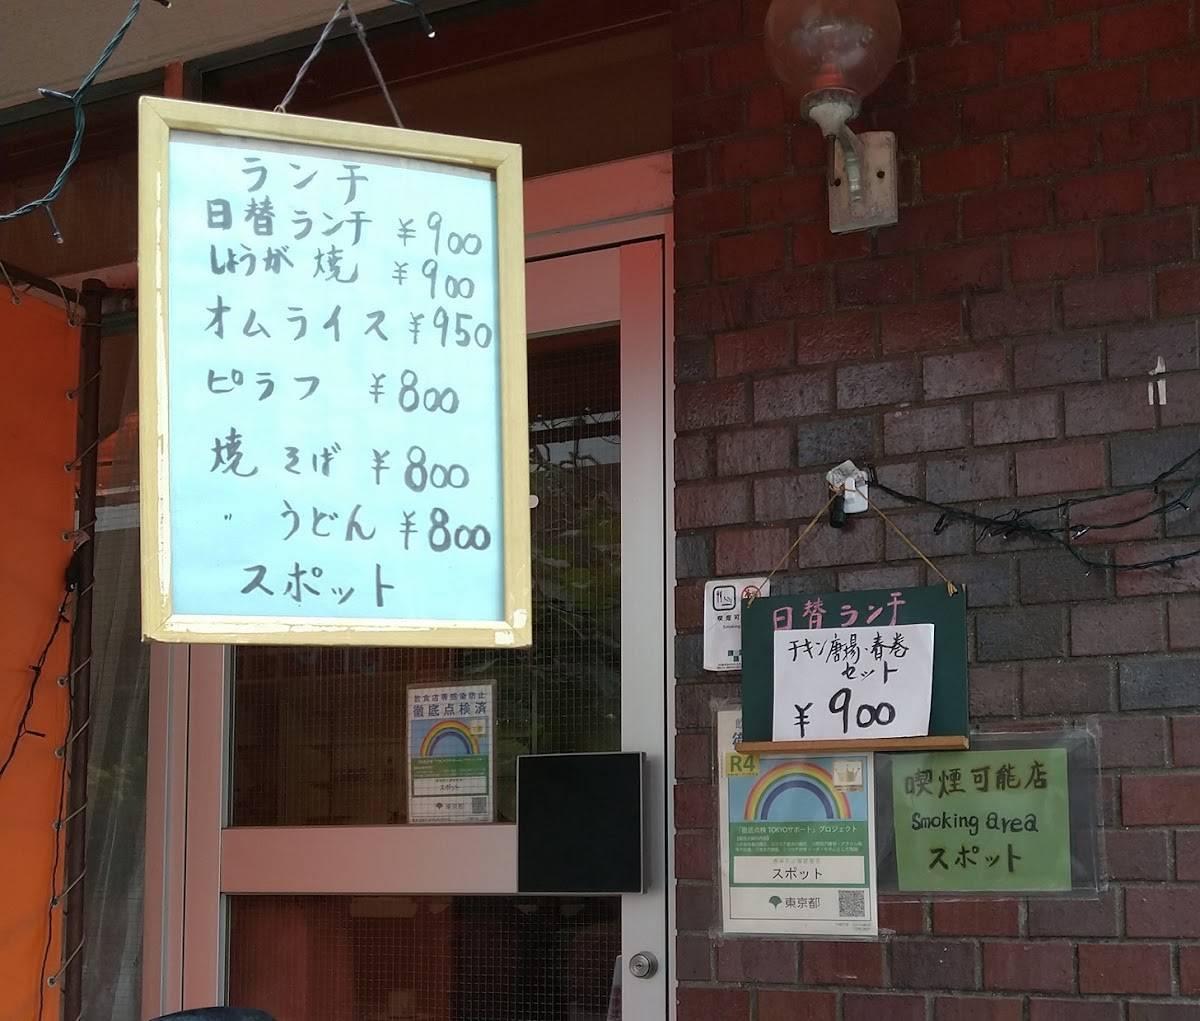 ランチ
日替ランチ ¥900
しょうが焼 ¥900
オムライス ¥950
ピラフ ¥800
焼そば ¥800
〃 うどん ¥800
スポット
日替ランチ
チキン唐揚・春巻
セット
¥900
飲食店等感染防止
徹底点検済
スポット
東京都
R4
「徹底点検 TOKYOサポート」プロジェクト
スポット
東京都
喫煙可能店
Smoking area
スポット